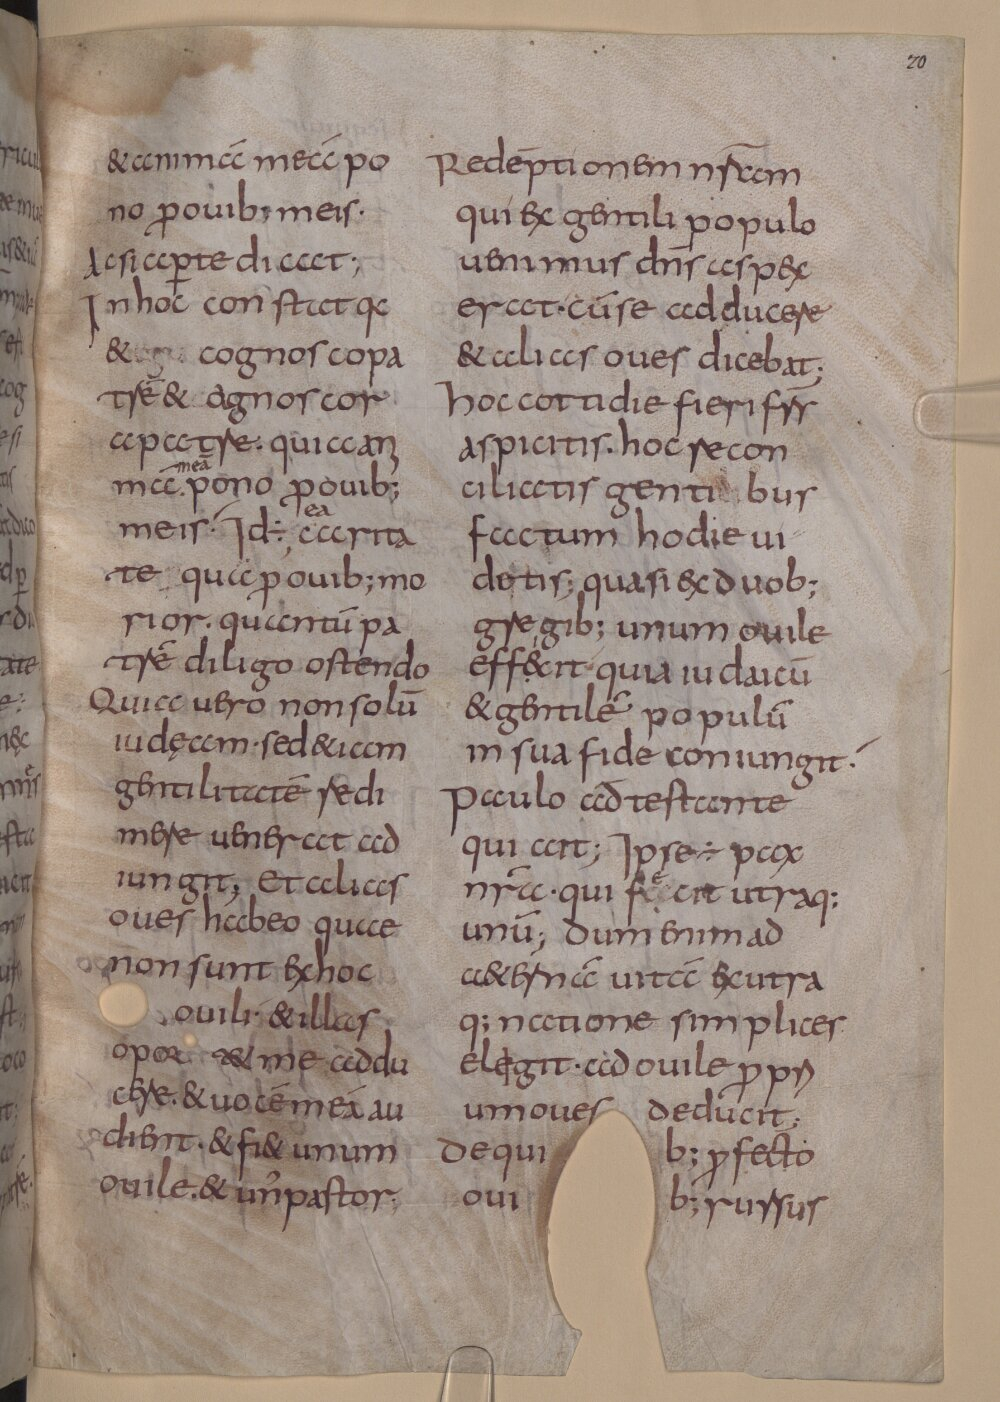 20
& animā meā po
no ꝓ ouib; meis·
Acsi aꝑte dicat;
In hoc constat qa
& cognosco pa
trē & agnoscor
a patre. quia anī
mā meā pono ꝓ ouib;
meis· Id÷ ea carita
te qua ꝓ ouib; mo
rior. quantū pa
trē diligo ostendo
Quia uero non solū
iudęam· sed & iam
gentilitatē redi
mere uenerat ad
iungit; Et alias
oues habeo quae
non sunt ex hoc
ouili· & illas
opor & me addu
cere. & uocē meā au
dient· & fi& unum
ouile. & un' pastor;
Redēptionem nr̄am
qui ex gentili populo
uenimus dn̄s aspex
erat· cū se adducere
& alias oues dicebat;
hoc cottidie fieri frs̄
aspicitis. hoc recon
ciliatis genti bus
factum hodie ui
detis; quasi ex duob;
gregib; unum ouile
effecit quia iudaicū
& gentilē populū
in sua fide coniungit·
Paulo ad testante
qui ait; Ipse ÷ pax
nr̄a· qui fecit utraq;
unū; Dum enim ad
a&ernā uitā ex utra
q; natione simplices
elegit· ad ouile ꝓpri
um oues deducit;
De qui b; ꝓfecto
oui b; rursus